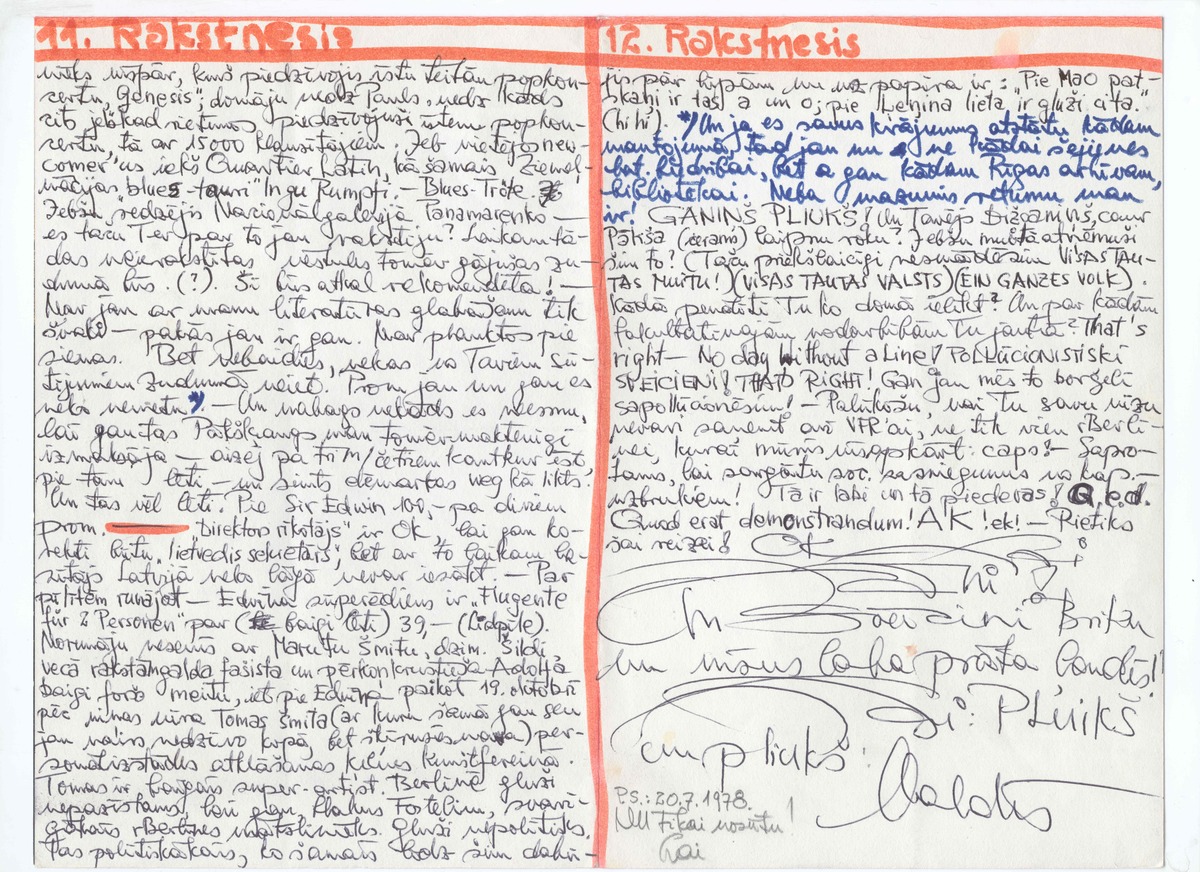 11. Rakstnesis
vieks vispār, kurš piedzīvojis īstu šeitān popkon-
certu, "Genesis"; domāju nedz Pauls, nedz kāds
cits jebkad rietumos piedzīvojuši īstenu popkon-
certu, tā ar 15000 klausītājiem. Jeb vietējos new-
comer'us iekš Quartier Latin, kā šamais Ziemel-
vācijas "blues-tauri" Ingu Rumpfi. — Blues-Trote.
Jebšu redzējis Nacionālgalerijā Panamarenko —
es taču Tev par to jau rakstīju? Laikam tā-
das neierakstītas vēstules tomēr gājušas zu-
dumā būs. (?). Šī būs atkal rekomendēta! —
Nav jau ar manu literatūras glabāšanu tik
švaki — pakās jau ir gan. Nav plauktos pie
sienas. Bet nebaidies, nekas no Taviem sū-
tījumiem zudumā neiet. Prom jau un gan es
neko nemetu*). — Un nabags nebūt es neesmu,
lai gan tas Pākšķangs man tomēr maktenīgi
izmaksāja — aizej pa trim/četriem kaut kur ēst,
pie tam lēti — un simts dēmarkas weg kā likts.
Un tas vēl lēti. Pie Sir Edwin 100,- pa diviem
prom. — "direktor rīkotājs" ir OK, lai gan ko-
rekti būtu "lietvedis sekretārs", bet ar to laikam ba-
zītājs Latvijā neko lāgā nevar iesākt. — Par
pīlītēm runājot — Edwīna superēdiens ir "Flugente
für 2 Personen" par (baigi lēti) 39,— (Lidpīle).
Norunāju nesenis ar Marutu Šmitu, dzim. Šildi,
vecā rakstāmgalda fašista un pērkonkrustieša Ādolfa
baigi foršo meitu, iet pie Edwīna paikot 19. oktobrī
pēc viņas vīra Tomas Šmita (ar kuru šamā jau sen
jau vairs nedzīvo kopā, bet šķīrusies nava) per-
sonālizstādes atklāšanas Ķelnes kunstfereinā.
Tomas ir baigais super-artist. Berlīnē gluži
nepazīstams, lai gan, blakus Fostelim, svarī-
gākais rBerlīnes mākslinieks. Gluži nepolitisks.
Tas politiskākais, ko šamais līdz šim darī-
12. Rakstnesis
jis pār lūpām un uz papīra ir: "Pie Mao pat-
skaņi ir tas a un o; pie Ļeņina lieta ir gluži cita."
(hi hi). *) Un ja es savus krājumus atstātu kādam
mantojumā, tad jau nu ne kādai šejienes
lat. biedrībai, bet a gan kādam Rīgas arhīvam,
bibliotēkai. Neba mazums retumu man
ir! GANIŅŠ PLIUKŠ! Un Tavējo Dižgaiņš, caur
Pākša (cerams) laipnu roku? Jebšu muitā atņēmuši
šim to? (Taču priekšlaicīgi nesmādēsim VISAS TAU-
TAS MUITU!) (VISAS TAUTAS VALSTS) (EIN GANZES VOLK).
Kādā penātēi Tu ko domā ielikt? Un par kādām
fakultatīvajām nodarbībām Tu jautā? That's
right — No day without a Line! POLLŪCIONISTISKI
SVEICIENI! THATD RIGHT! Gan jau mēs to bordeli
sapollūcionēsim! — Palūkošu, vai Tu savu vīzu
nevari saņemt arī VFR'ai, ne tik vien rBerlī-
nei, kuraī mūris visapkārt: caps! — Sapro-
tams, lai sargātu soc. sasniegumus no kap-
uzbrukiem! Tā ir labi un tā piederas! Q.e.d.
Quod erat demonstrandum! AK! ek! — Pietiks
šai reizei! OK
Un sveicini Britu
un visus laba prāta ļaudis!
Ši: PLIUKŠ
un pliukš:
Valdis
P.S.: 20.7.1978.
Nu tikai nosūtu!
Čai